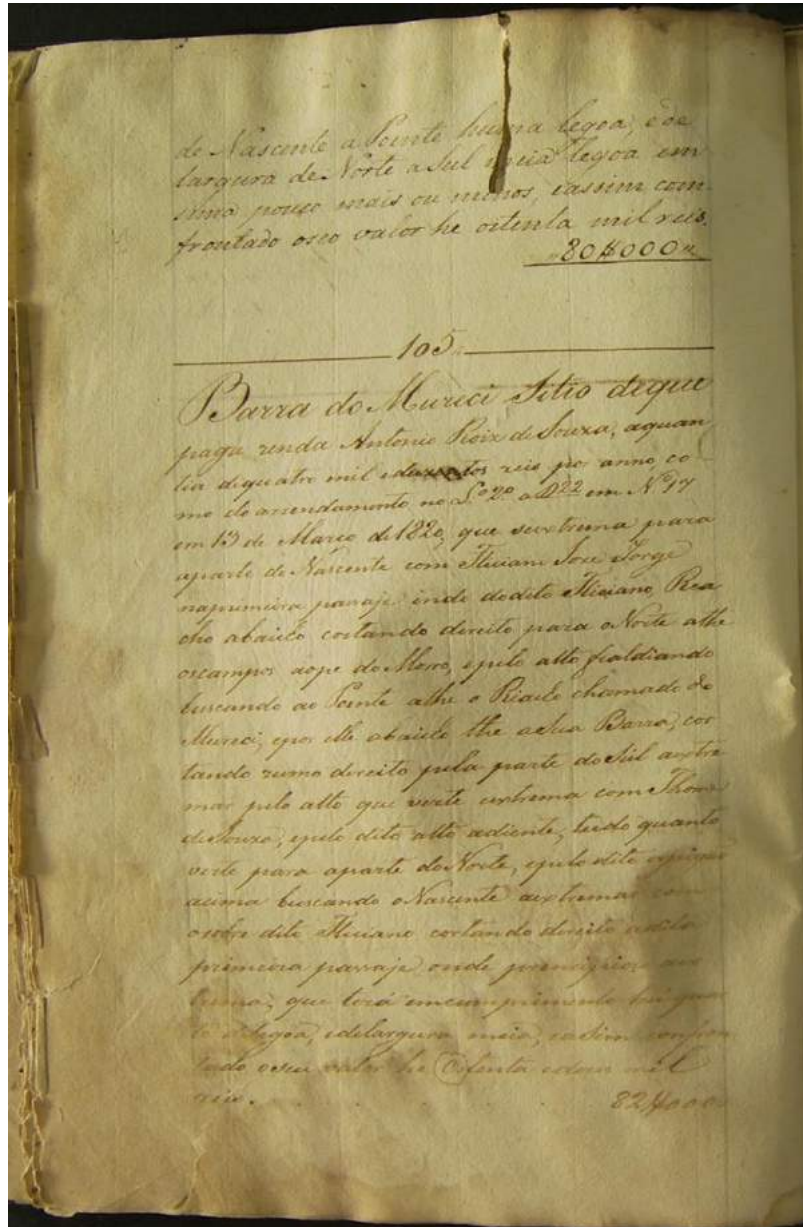 de Nascente a Poente huma legoa, e de
largura de Norte a Sul meia legoa em
sima pouco mais ou menos, eassim com-
frontado oseo valor he oitenta mil reis.
80$000
105
Barra do Murici Sitio deque
paga renda Antonio Roiz de Souza, aquan
tia dequatro mil eduzentos reis por anno, co-
mo do arrendamento no L.º 2º a 22 em Nº 17
em 13 de Março de 1820, que seextrema para
aparte do Nascente com Feliciano Jose Jorge
naprimeira passaje indo dodito Feliciano, Rea
cho abaicho cortando direito para oNorte athe
oscampos aope do Morro, epelo alto
buscando ao Poente athe o Riacho chamado do
Murici, epor elle abaicho the aSua Barra, cor
tando rumo direito pela parte doSul aextre
mar pelo alto que verte extrema com Thome
deSouza, epelo dito alto adiente, tudo quanto
verte para aparte doNorte, epelo dito
acima buscando oNascente aextremar com
osobre dito Feliciano cortando direito adita
primeira passaje onde principiou aex
trema, que terá emcumprimento
legoa, edelargura meia, eassim confron
tado oseu valor he Oitenta edous mil
reis. 82$000